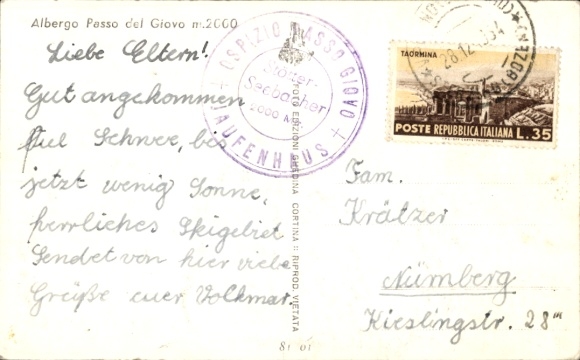 Albergo Passo del Giovo m.2000
Liebe Eltern!
Gut angekommen
Viel Schnee, bis
jetzt wenig Sonne,
herrliches Skigebiet
Sendet von hier viele
Grüße euer Volkmar.
OSPIZIO PASSO GIOVO
Stotter-
Seebacher
2000 M.
JAUFENHAUS
FOTO EDIZIONI GHEDINA CORTINA RIPROD. VIETATA
28.12.1954
(BOZEN)
TAORMINA
POSTE REPUBBLICA ITALIANA L.35
Fam.
Krätzer
Nürnberg
Kieslingstr. 28
81 01